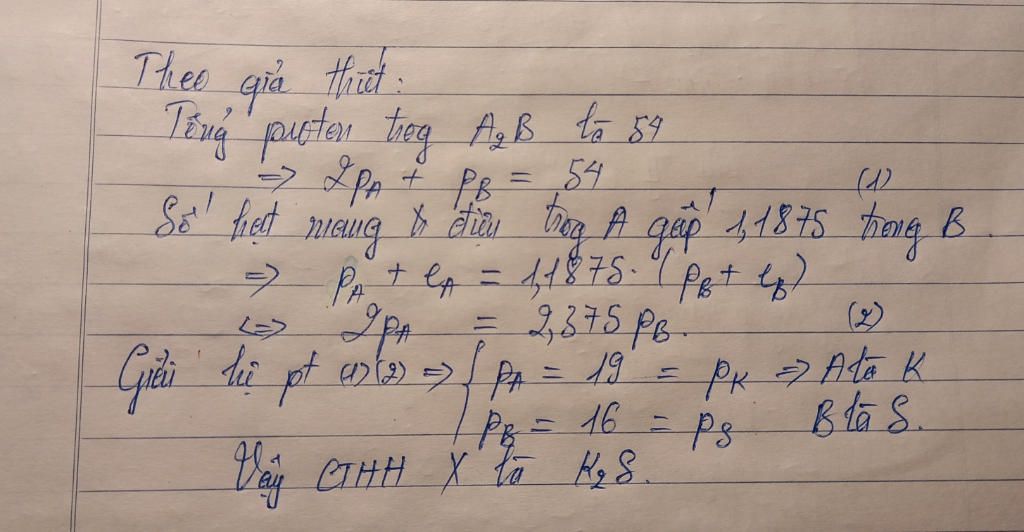 Theo giả thiết:
Tổng proton trog A₂B là 54
=> 2pA + pB = 54 (1)
Số hạt mang điện trog A gấp 1,1875 trong B.
=> pA + eA = 1,1875. (pB + eB)
<=> 2pA = 2,375 pB. (2)
Giải hệ pt (1)(2) => { pA = 19 = pK => A là K
pB = 16 = pS B là S.
Vậy CTHH X là K₂S.